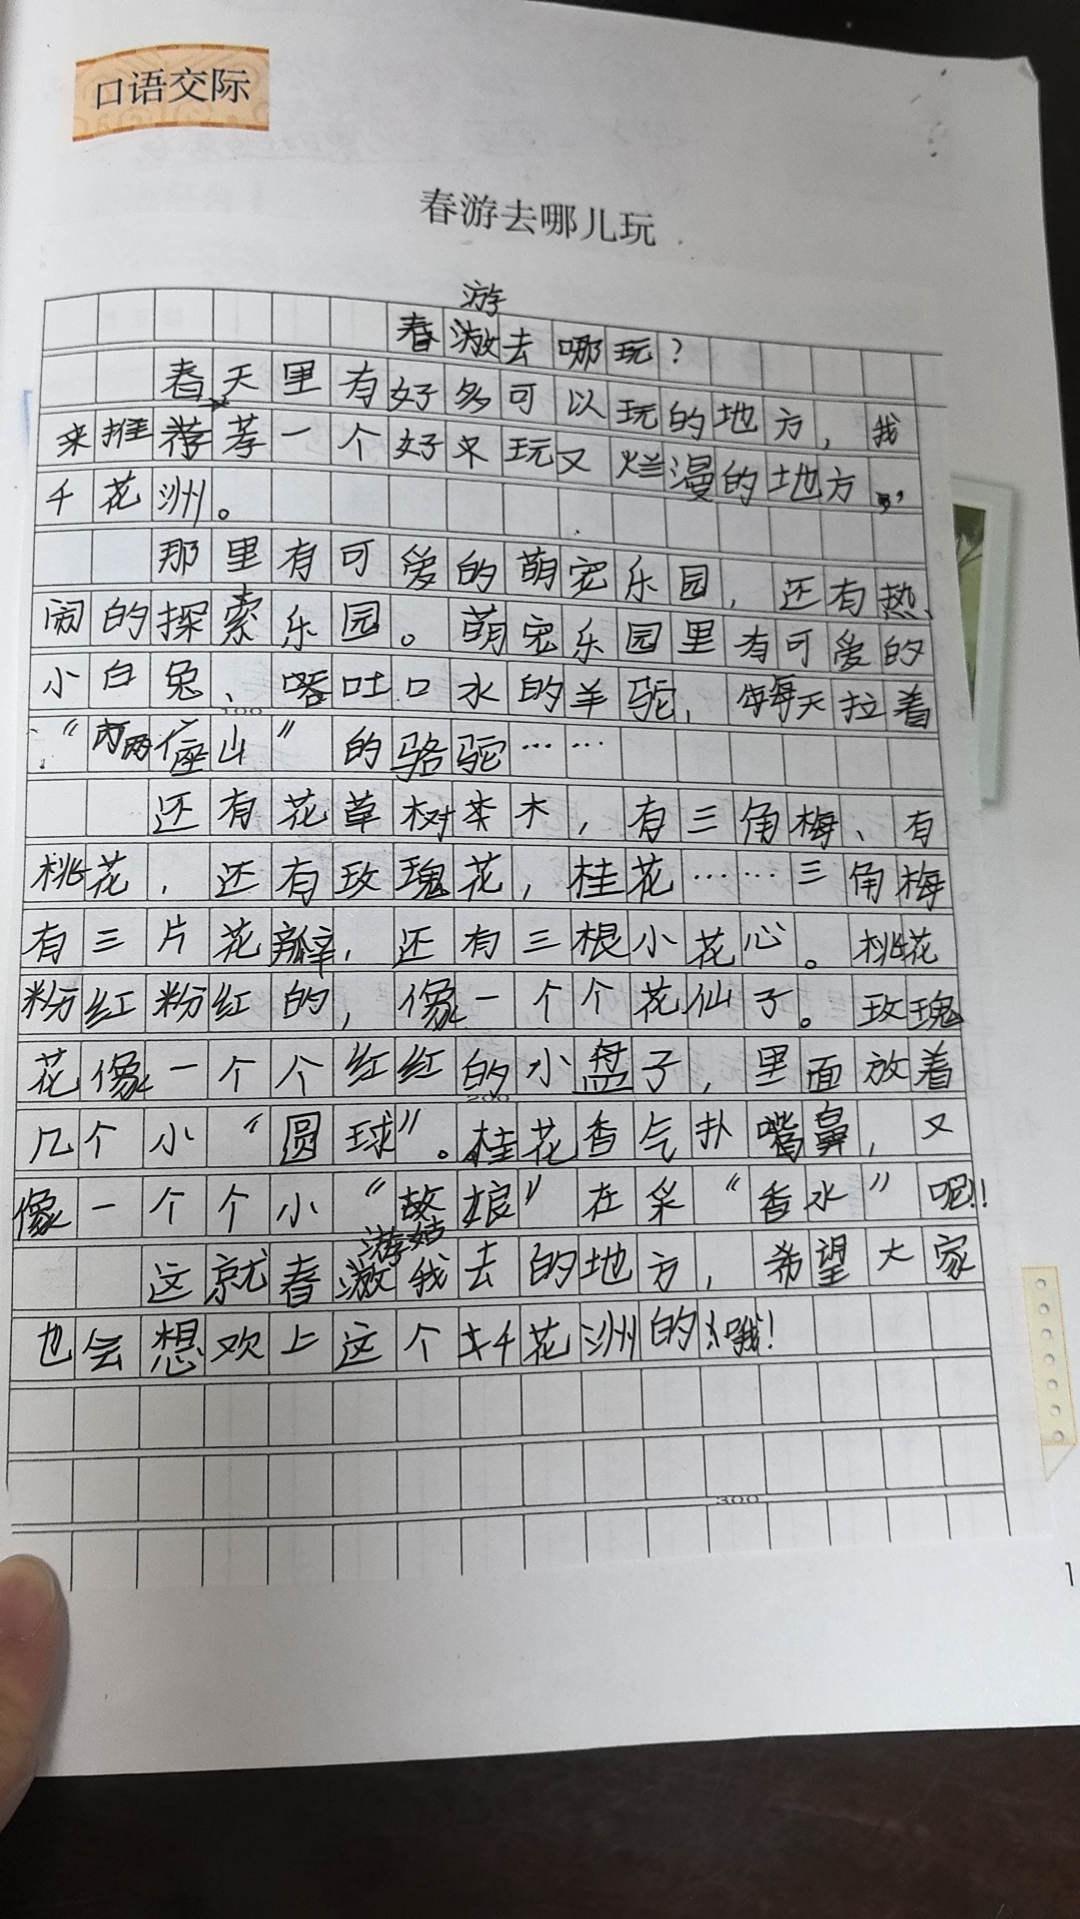 口语交际
春游去哪儿玩
游
春激去哪玩？
春天里有好多可以玩的地方，我
来推荐荐一个好又玩又烂漫的地方，
千花洲。
那里有可爱的萌宠乐园，还有热
闹的探索乐园。萌宠乐园里有可爱的
小白兔、嗒吐口水的羊驼，每天拉着
“两座山”的骆驼……
还有花草树木，有三角梅、有
桃花，还有玫瑰花，桂花……三角梅
有三片花瓣，还有三根小花心。桃花
粉红粉红的，像一个个花仙子。玫瑰
花像一个个红红的小盘子，里面放着
100
200
几个小“圆球”。桂花香气扑鼻，又
像一个个小“故娘”在采“香水”呢！！
游姑
这就春激我去的地方，希望大家
也会想欢上这个千花洲的哦！
300
1